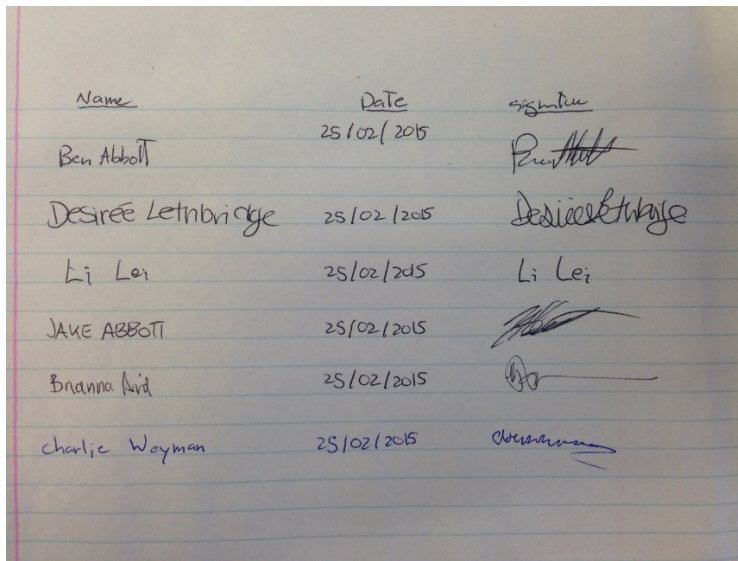 Name Date signature
Ben Abbott 25/02/2015
Desireé Lethbridge 25/02/2015 Desireé Lethbridge
Li Lei 25/02/2015 Li Lei
JAKE ABBOTT 25/02/2015
Brianna Aird 25/02/2015
Charlie Weyman 25/02/2015